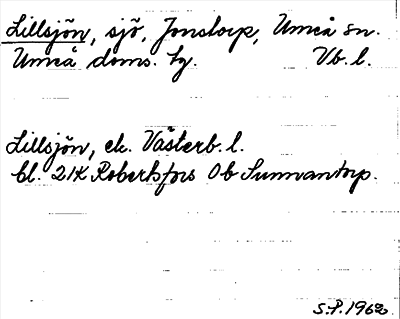 Lillsjön, sjö, Jonstorp, Umeå sn.
Umeå doms. tg. Vb. l.
Lillsjön, ek. Västerb. l.
bl. 21K Robertsfors 0b Sunnansorp.
S.P. 1968